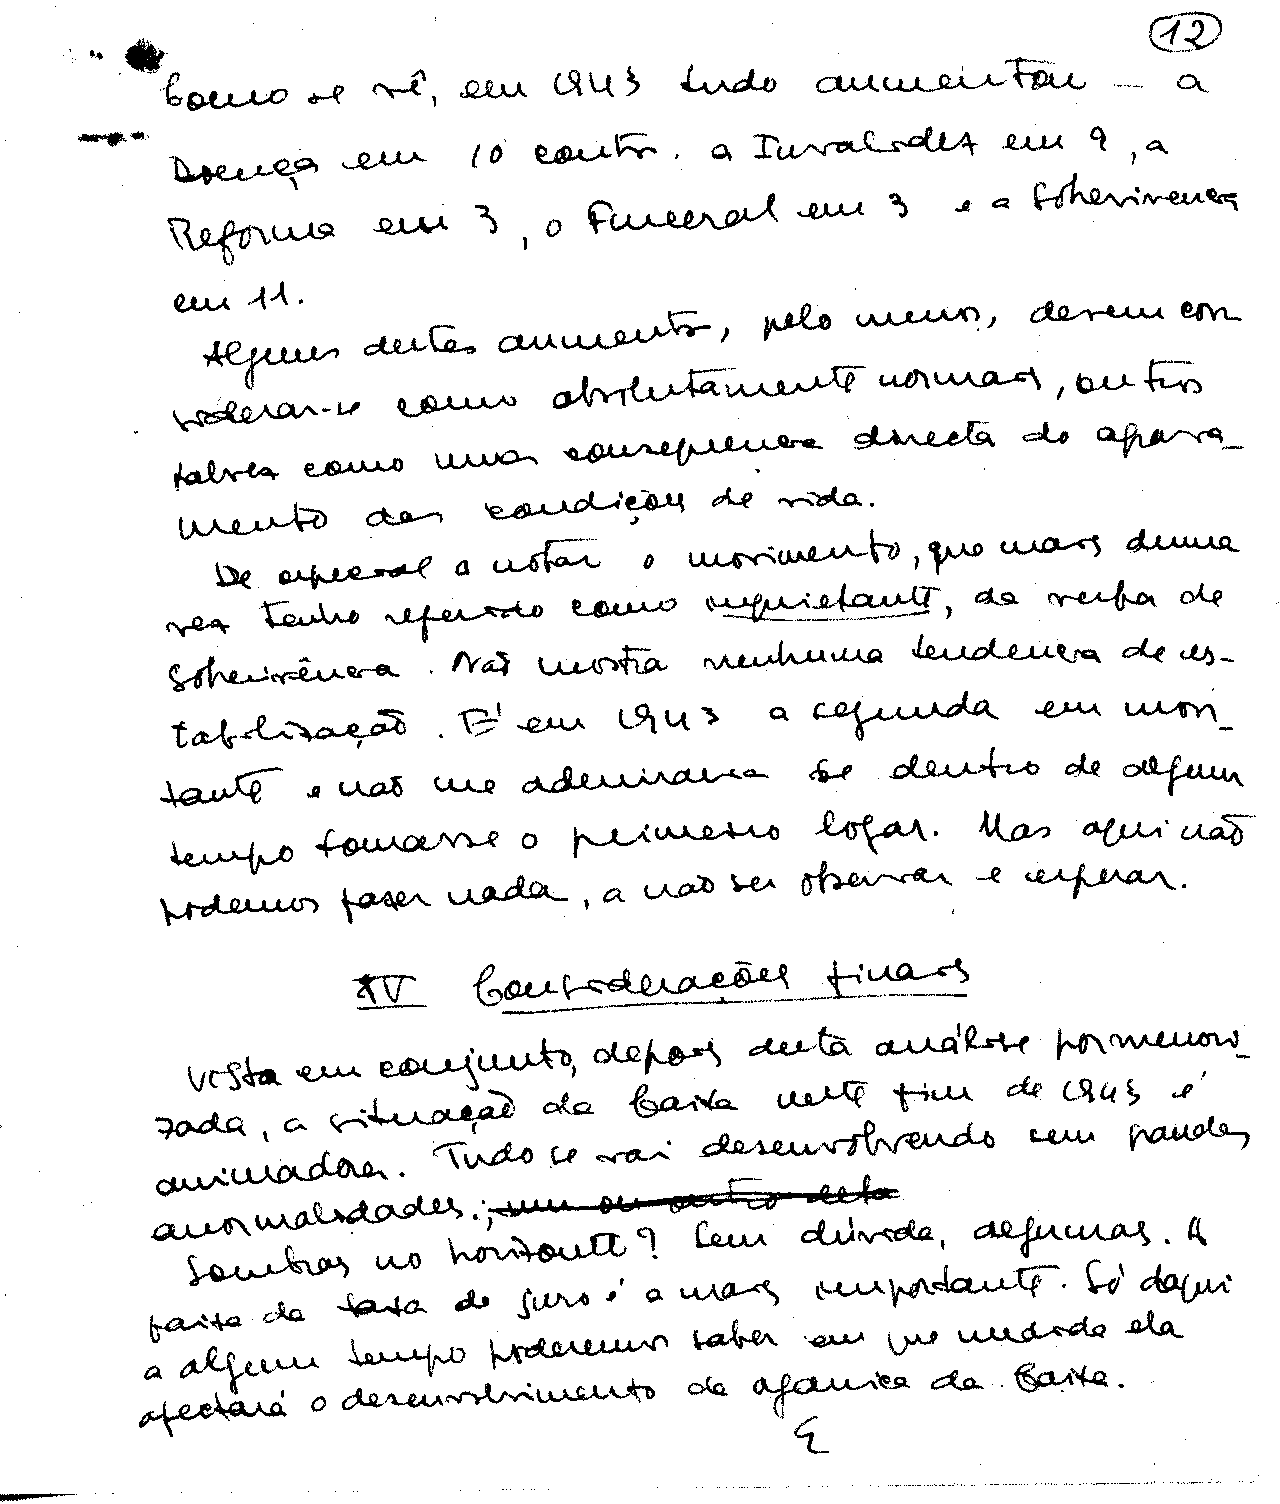 12
Como se vê, em 1943 tudo aumentou — a
Doença em 10 contos. a Invalidez em 9, a
Reforma em 3, o Funeral em 3 e a Sobrevivência
em 11.
Alguns destes aumentos, pelo menos, devem con
siderar-se como absolutamente normais, outros
talvez como uma consequencia directa do agrava-
mento das condições de vida.
De especial a notar o movimento, que mais duma
vez tenho referido como inquietante, da verba de
Sobrevivência. Não mostra nenhuma tendencia de es-
tabilização. É em 1943 a segunda em mon-
tante e não me admiraria se dentro de algum
tempo tomasse o primeiro logar. Mas aqui não
podemos fazer nada, a não ser observar e esperar.
IV Considerações finais
Vista em conjunto, depois desta análise pormenori-
zada, a situação da Caixa neste fim de 1943 é
animadora. Tudo se vai desenvolvendo sem grandes
anormalidades.; um ou outro deta
Sombras no horizonte? Sem dúvida, algumas. A
baixa da taxa de juro é a mais importante. Só daqui
a algum tempo poderemos saber em que medida ela
afectará o desenvolvimento da organica da Caixa.